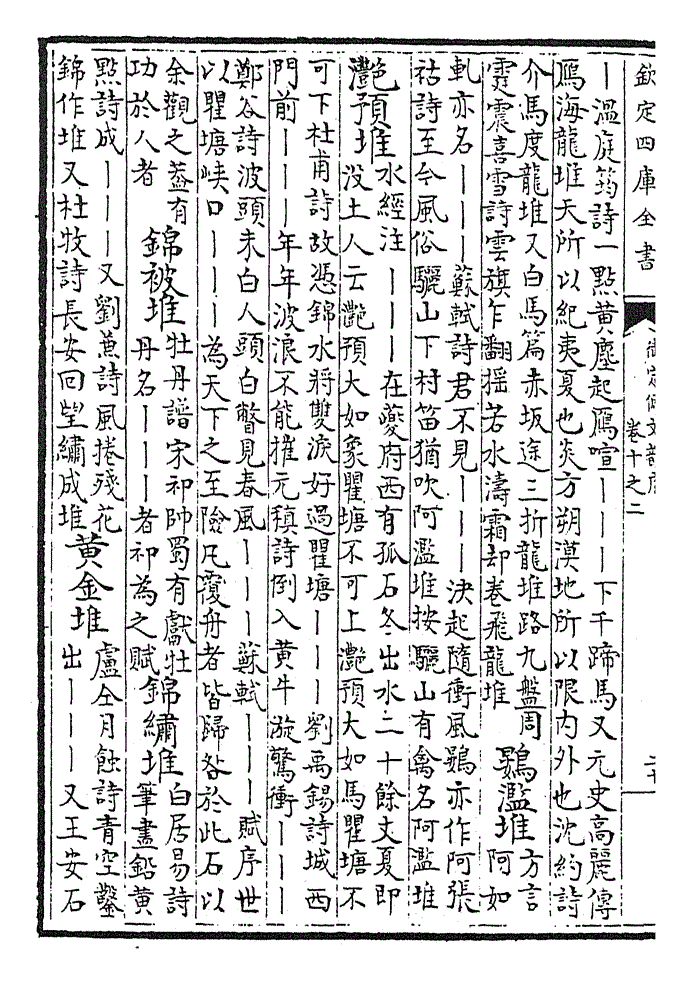 欽定四庫全書
御定佩文韻府 卷十之二
｜溫庭筠詩一點黄塵起鴈喧｜｜｜下千蹄馬又元史高麗傳
鴈海龍堆天所以紀夷夏也炎方朔漠地所以限内外也沈約詩
介馬度龍堆又白馬篇赤坂途三折龍堆路九盤周
霓震喜雪詩雲旗乍翻揺若水濤霜却卷飛龍堆
鷃濫堆
方言
阿如
軋亦名｜｜｜蘇軾詩君不見｜｜｜決起隨衝風鷃亦作阿張
祜詩至今風俗驪山下村笛猶吹阿濫堆按驪山有禽名阿濫堆
灧預堆
水經注｜｜｜在夔府西有孤石冬出水二十餘丈夏即
没土人云灧預大如象瞿塘不可上灧預大如馬瞿塘不
可下杜甫詩故憑錦水將雙淚好過瞿塘｜｜｜劉禹錫詩城西
門前｜｜｜年年波浪不能摧元稹詩倒入黄牛漩驚衝｜｜｜
鄭谷詩波頭未白人頭白瞥見春風｜｜｜蘇軾｜｜｜賦序世
以瞿塘峽口｜｜｜為天下之至險凡覆舟者皆歸咎於此石以
余觀之葢有
功於人者
錦被堆
牡丹譜宋祁帥蜀有獻牡
丹名｜｜｜者祁為之賦
錦繡堆
白居易詩
筆盡鉛黄
點詩成｜｜｜又劉兼詩風捲殘花
錦作堆又杜牧詩長安回望繡成堆
黄金堆
盧仝月蝕詩青空鑿
出｜｜｜又王安石